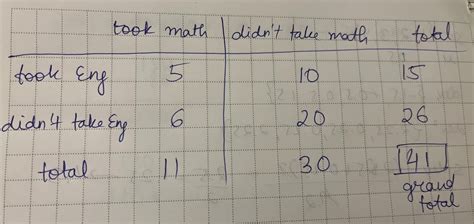 took math didn't take math total
took Eng 5 10 15
didn't take Eng 6 20 26
total 11 30 41
grand
total